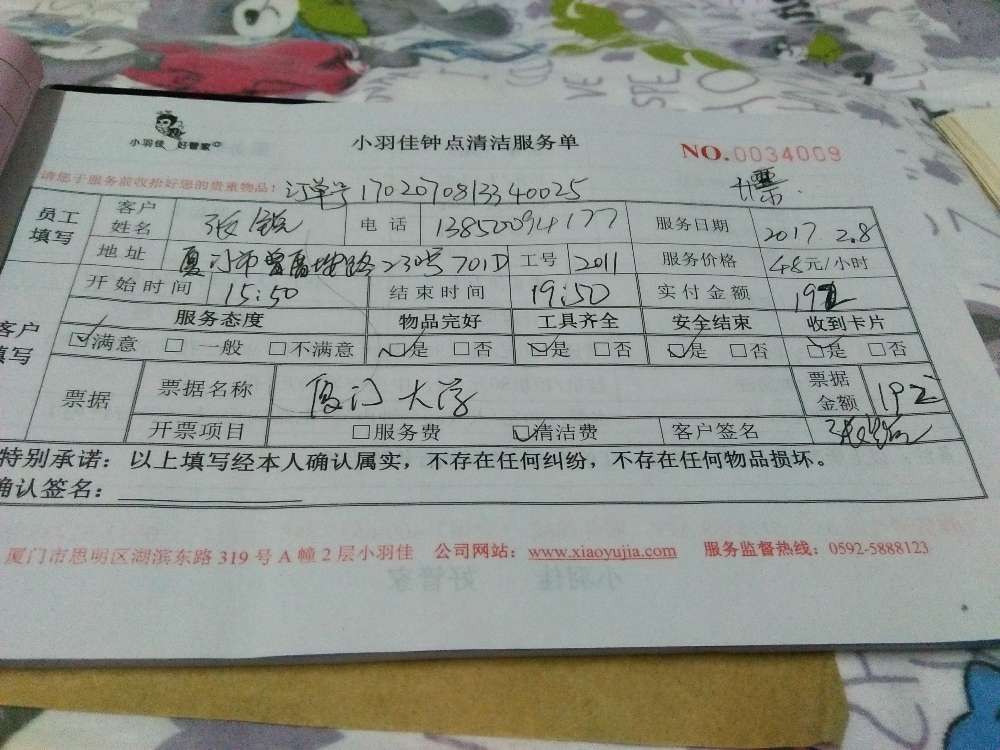 小羽佳 好管家
小羽佳钟点清洁服务单
NO.0034009
请您于服务前收拾好您的贵重物品！ 订单号 1702070813340025 开票.
员工填写 客户姓名 张 电话 13850094177 服务日期 2017 2.8
地址 厦门市曾厝垵路230号701D 工号 2011 服务价格 48元/小时
开始时间 15:50 结束时间 19:50 实付金额 192
客户填写 服务态度 物品完好 工具齐全 安全结束 收到卡片
☑满意 □一般 □不满意 ☑是 □否 ☑是 □否 ☑是 □否 ☑是 □否
票据 票据名称 厦门大学 票据金额 192
开票项目 □服务费 ☑清洁费 客户签名
特别承诺：以上填写经本人确认属实，不存在任何纠纷，不存在任何物品损坏。
确认签名：
厦门市思明区湖滨东路 319 号 A 幢 2 层小羽佳 公司网站：www.xiaoyujia.com 服务监督热线：0592-5888123